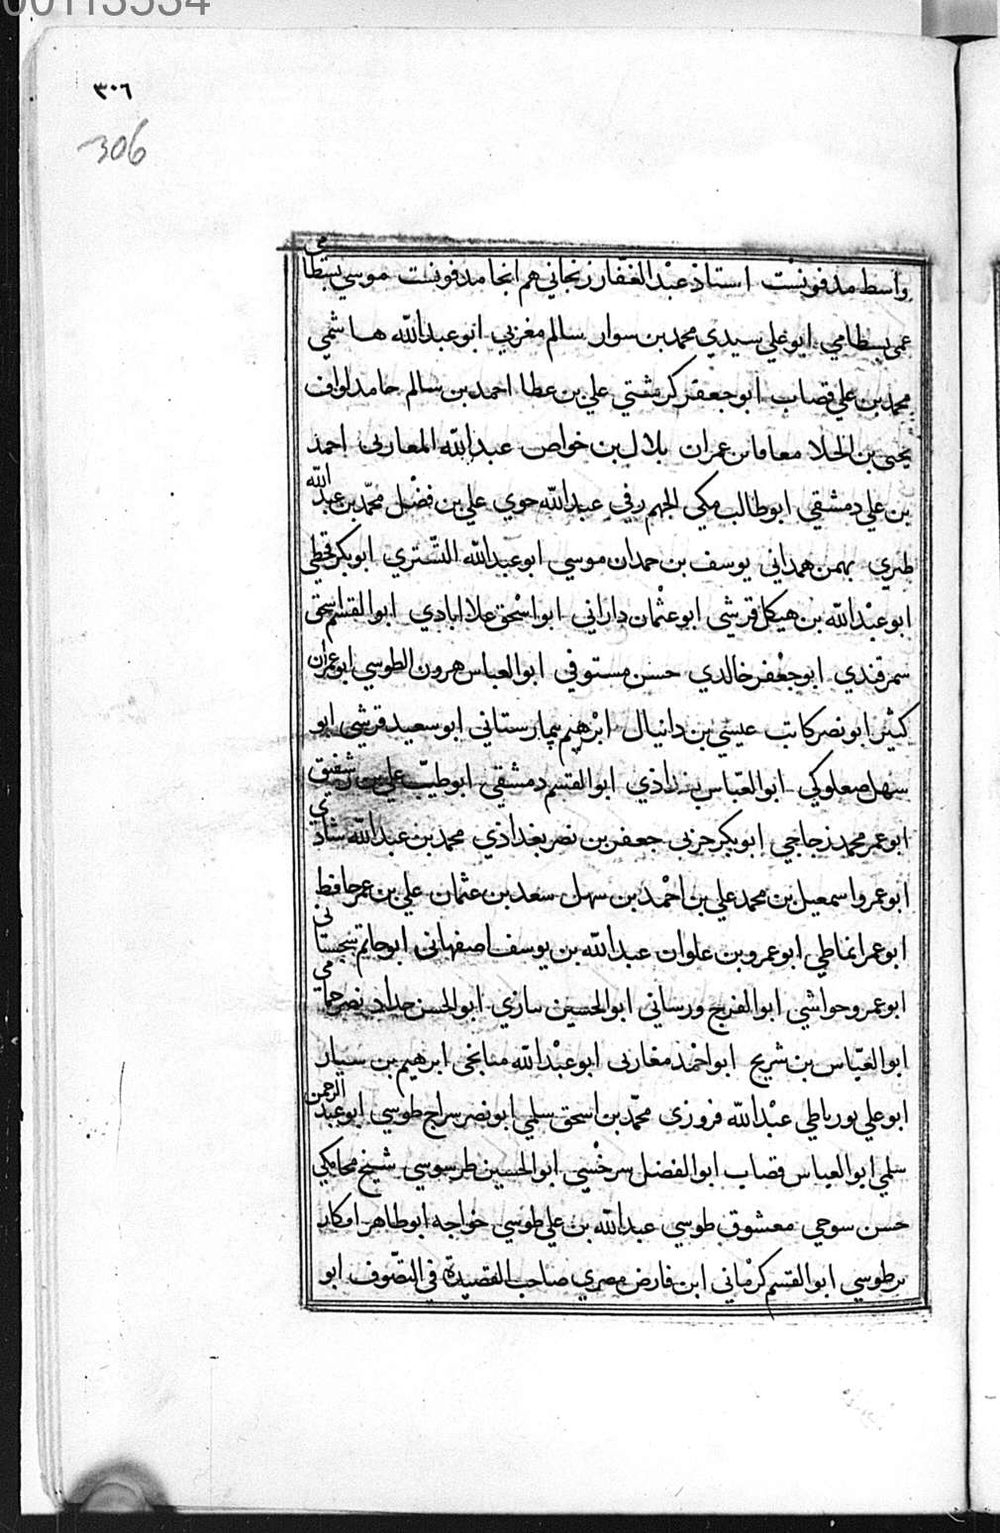 00113534
٣٠٦
306
واسط مدفونست استاذ عبد الغفار زنجاني هم انجا مدفونست موسي بسطامي
عمي بسطامي ابو علي سيدي محمد بن سوار سالم مغربي ابو عبد الله هاشمي
محمد بن علي قصاب ابو جعفر كرشتي علي بن عطا احمد بن سالم حامد لواف
يحيى بن الجلا معافا بن عمران بلال بن خواص عبد الله المعاربى احمد
بن علي دمشقي ابو طالب مكي الجهم رقي عبد الله حوي علي بن فضل محمد بن عبد الله
طبري بهمن همداني يوسف بن حمدان موسي ابو عبد الله التستري ابو بكر قحطي
ابو عبد الله بن هيكل قريشي ابو عثمان داراني ابو اسحق علا ابادي ابو القسم اسحق
سمرقندي ابو جعفر خالدي حسن مستوفي ابو العباس هرون الطوسي ابو عمران
كثير ابو نصر كاتب عيسي بن دانيال ابرهيم بيمارستاني ابو سعيد قريشي ابو
سهل صعلوكي ابو العباس بزداذي ابو القسم دمشقي ابو طيب علي بن شفيق
ابو عمر محمد زجاجي ابو بكر جزبى جعفر بن نصر بغداذي محمد بن عبد الله شاذي
ابو عمرو اسمعيل بن محمد علي بن احمد بن سهل سعد بن عثمان علي بن عمر حافظ
ابو عمر انماطي ابو عمرو بن علوان عبد الله بن يوسف اصفهاني ابو حاتم سجستاني
ابو عمرو حواشي ابو الفرج ورساني ابو الحسين سازي ابو الحسن حداد نصر حمامي
ابو العباس بن شريح ابو احمد مغاربى ابو عبد الله منابخى ابرهيم بن سيار
ابو علي نورباطي عبد الله فروزى محمد بن اسحق سلمي ابو نصر سراج طوسي ابو عبد الرحمن
سلمي ابو العباس قصاب ابو الفضل سرخسي ابو الحسين طرسوسي شيخ محامكي
حسن سوحي معشوق طوسي عبد الله بن علي طوسي خواجه ابو طاهر امكاد
بر طوسي ابو القسم كرماني ابن فارض مصري صاحب القصيدة في التصوف ابو